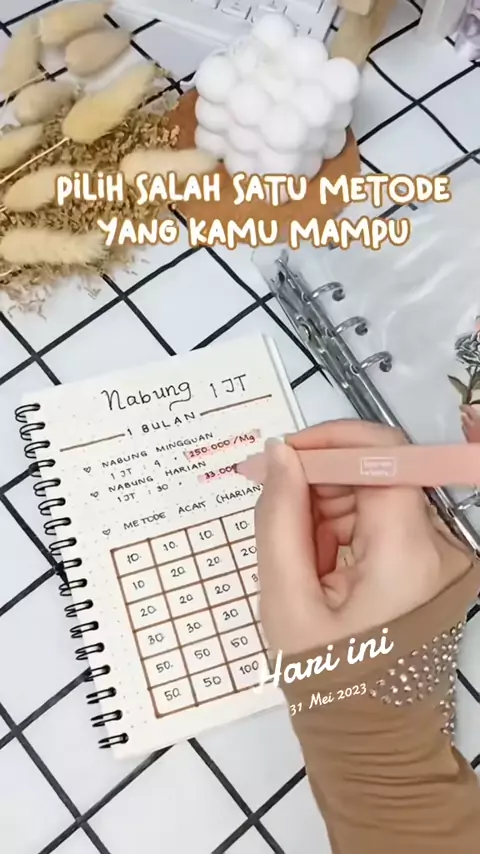 PILIH SALAH SATU METODE
YANG KAMU MAMPU
Nabung 1 JT
1 BULAN
♡ NABUNG MINGGUAN
1 JT : 4 = 250.000/Mg
♡ NABUNG HARIAN
1 JT : 30 =
♡ METODE ACAK (HARIAN)
10. 10. 10. 10.
10 20 20. 20
20 20 20
30 30 30
50. 50 50
50. 50 100
Hari ini
31 Mei 2023